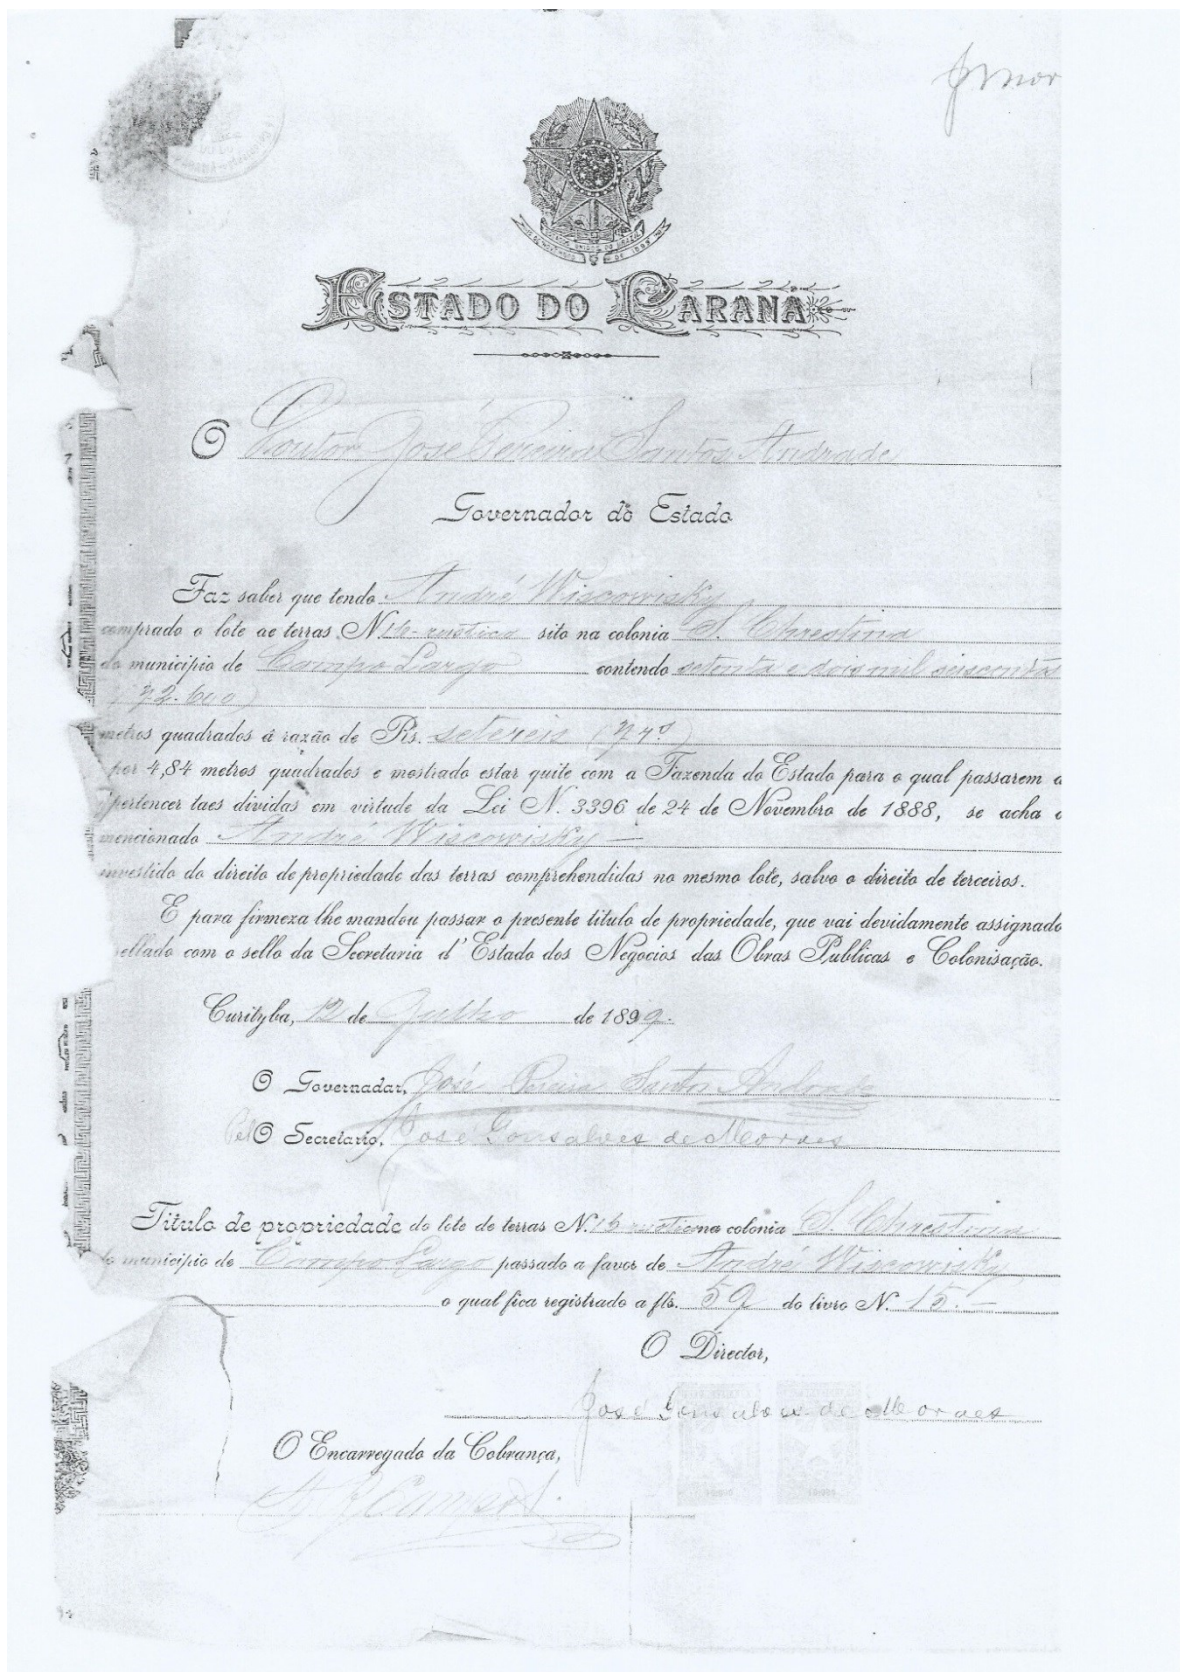 ESTADO DO PARANÁ
O Doutor José Pereira Santos Andrade
Governador do Estado
Faz saber que tendo André Wiscowisky
comprado o lote de terras N. rustico sito na colonia S. Chrestina
do municipio de Campo Largo contendo setenta e dois mil seiscentos
(72.600)
metros quadrados á razão de Rs. sete reis
por 4,84 metros quadrados e mostrado estar quite com a Fazenda do Estado para o qual passarem a
pertencer taes dividas em virtude da Lei N. 3396 de 24 de Novembro de 1888, se acha o
mencionado André Wiscowisky
investido do direito de propriedade das terras comprehendidas no mesmo lote, salvo o direito de terceiros.
E para firmeza lhe mandou passar o presente titulo de propriedade, que vai devidamente assignado
sellado com o sello da Secretaria d'Estado dos Negocios das Obras Publicas e Colonisação.
Curityba, 12 de Julho de 1899.
O Governador, José Pereira Santos Andrade
Pelo O Secretario, José Gonsalves de Moraes
Titulo de propriedade do lote de terras N. rustico na colonia S. Chrestina
do municipio de Campo Largo passado a favor de André Wiscowisky
o qual fica registrado a fls. 59 do livro N. 15.-
O Director,
José Gonsalves de Moraes
O Encarregado da Cobrança,
Campos